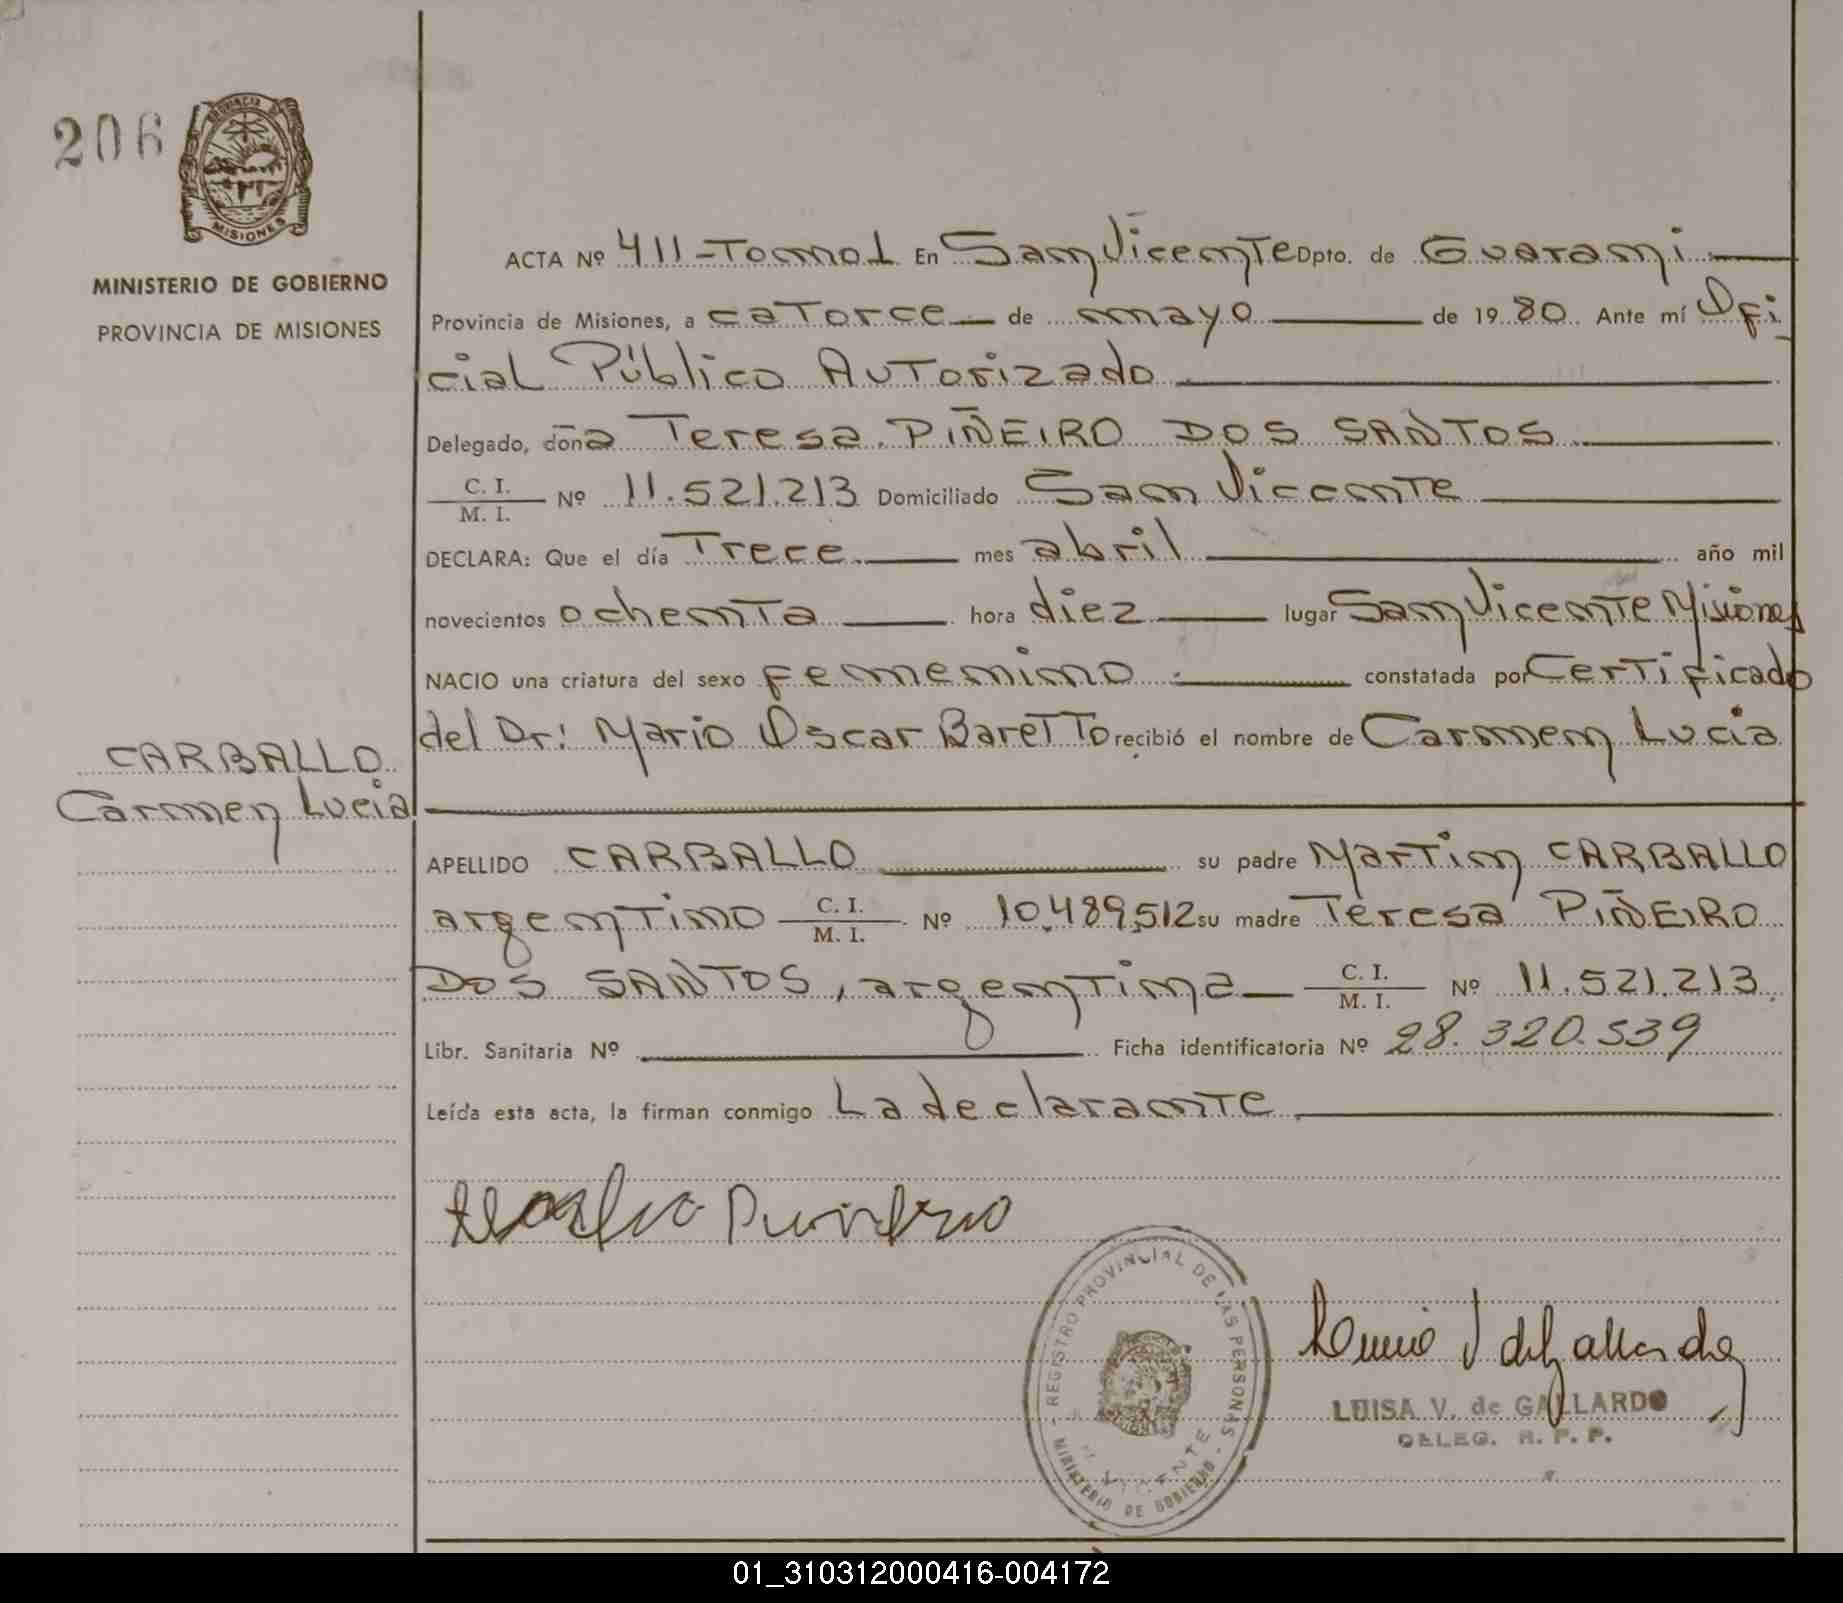 206
PROVINCIA DE
MISIONES
MINISTERIO DE GOBIERNO
PROVINCIA DE MISIONES
CARBALLO
Carmen Lucia
ACTA Nº 411-Tomo 1 En San Vicente Dpto. de Guarani
Provincia de Misiones, a catorce de mayo de 1980. Ante mí Ofi
cial Público Autorizado
Delegado, doña Teresa PIÑEIRO DOS SANTOS
C. I. / M. I. Nº 11.521.213 Domiciliado San Vicente
DECLARA: Que el día Trece mes abril año mil
novecientos ochenta hora diez lugar San Vicente Misiones
NACIO una criatura del sexo femenino constatada por Certificado
del Dr: Mario Oscar Baretto recibió el nombre de Carmen Lucia
APELLIDO CARBALLO su padre Martin CARBALLO
argentino C. I. / M. I. Nº 10.489.512 su madre Teresa PIÑEIRO
DOS SANTOS, argentina C. I. / M. I. Nº 11.521.213.
Libr. Sanitaria Nº Ficha identificatoria Nº 28.320.539
Leída esta acta, la firman conmigo La declarante
REGISTRO PROVINCIAL DE LAS PERSONAS
MINISTERIO DE GOBIERNO
LUISA V. de GALLARDO
DELEG. R. P. P.
01_310312000416-004172